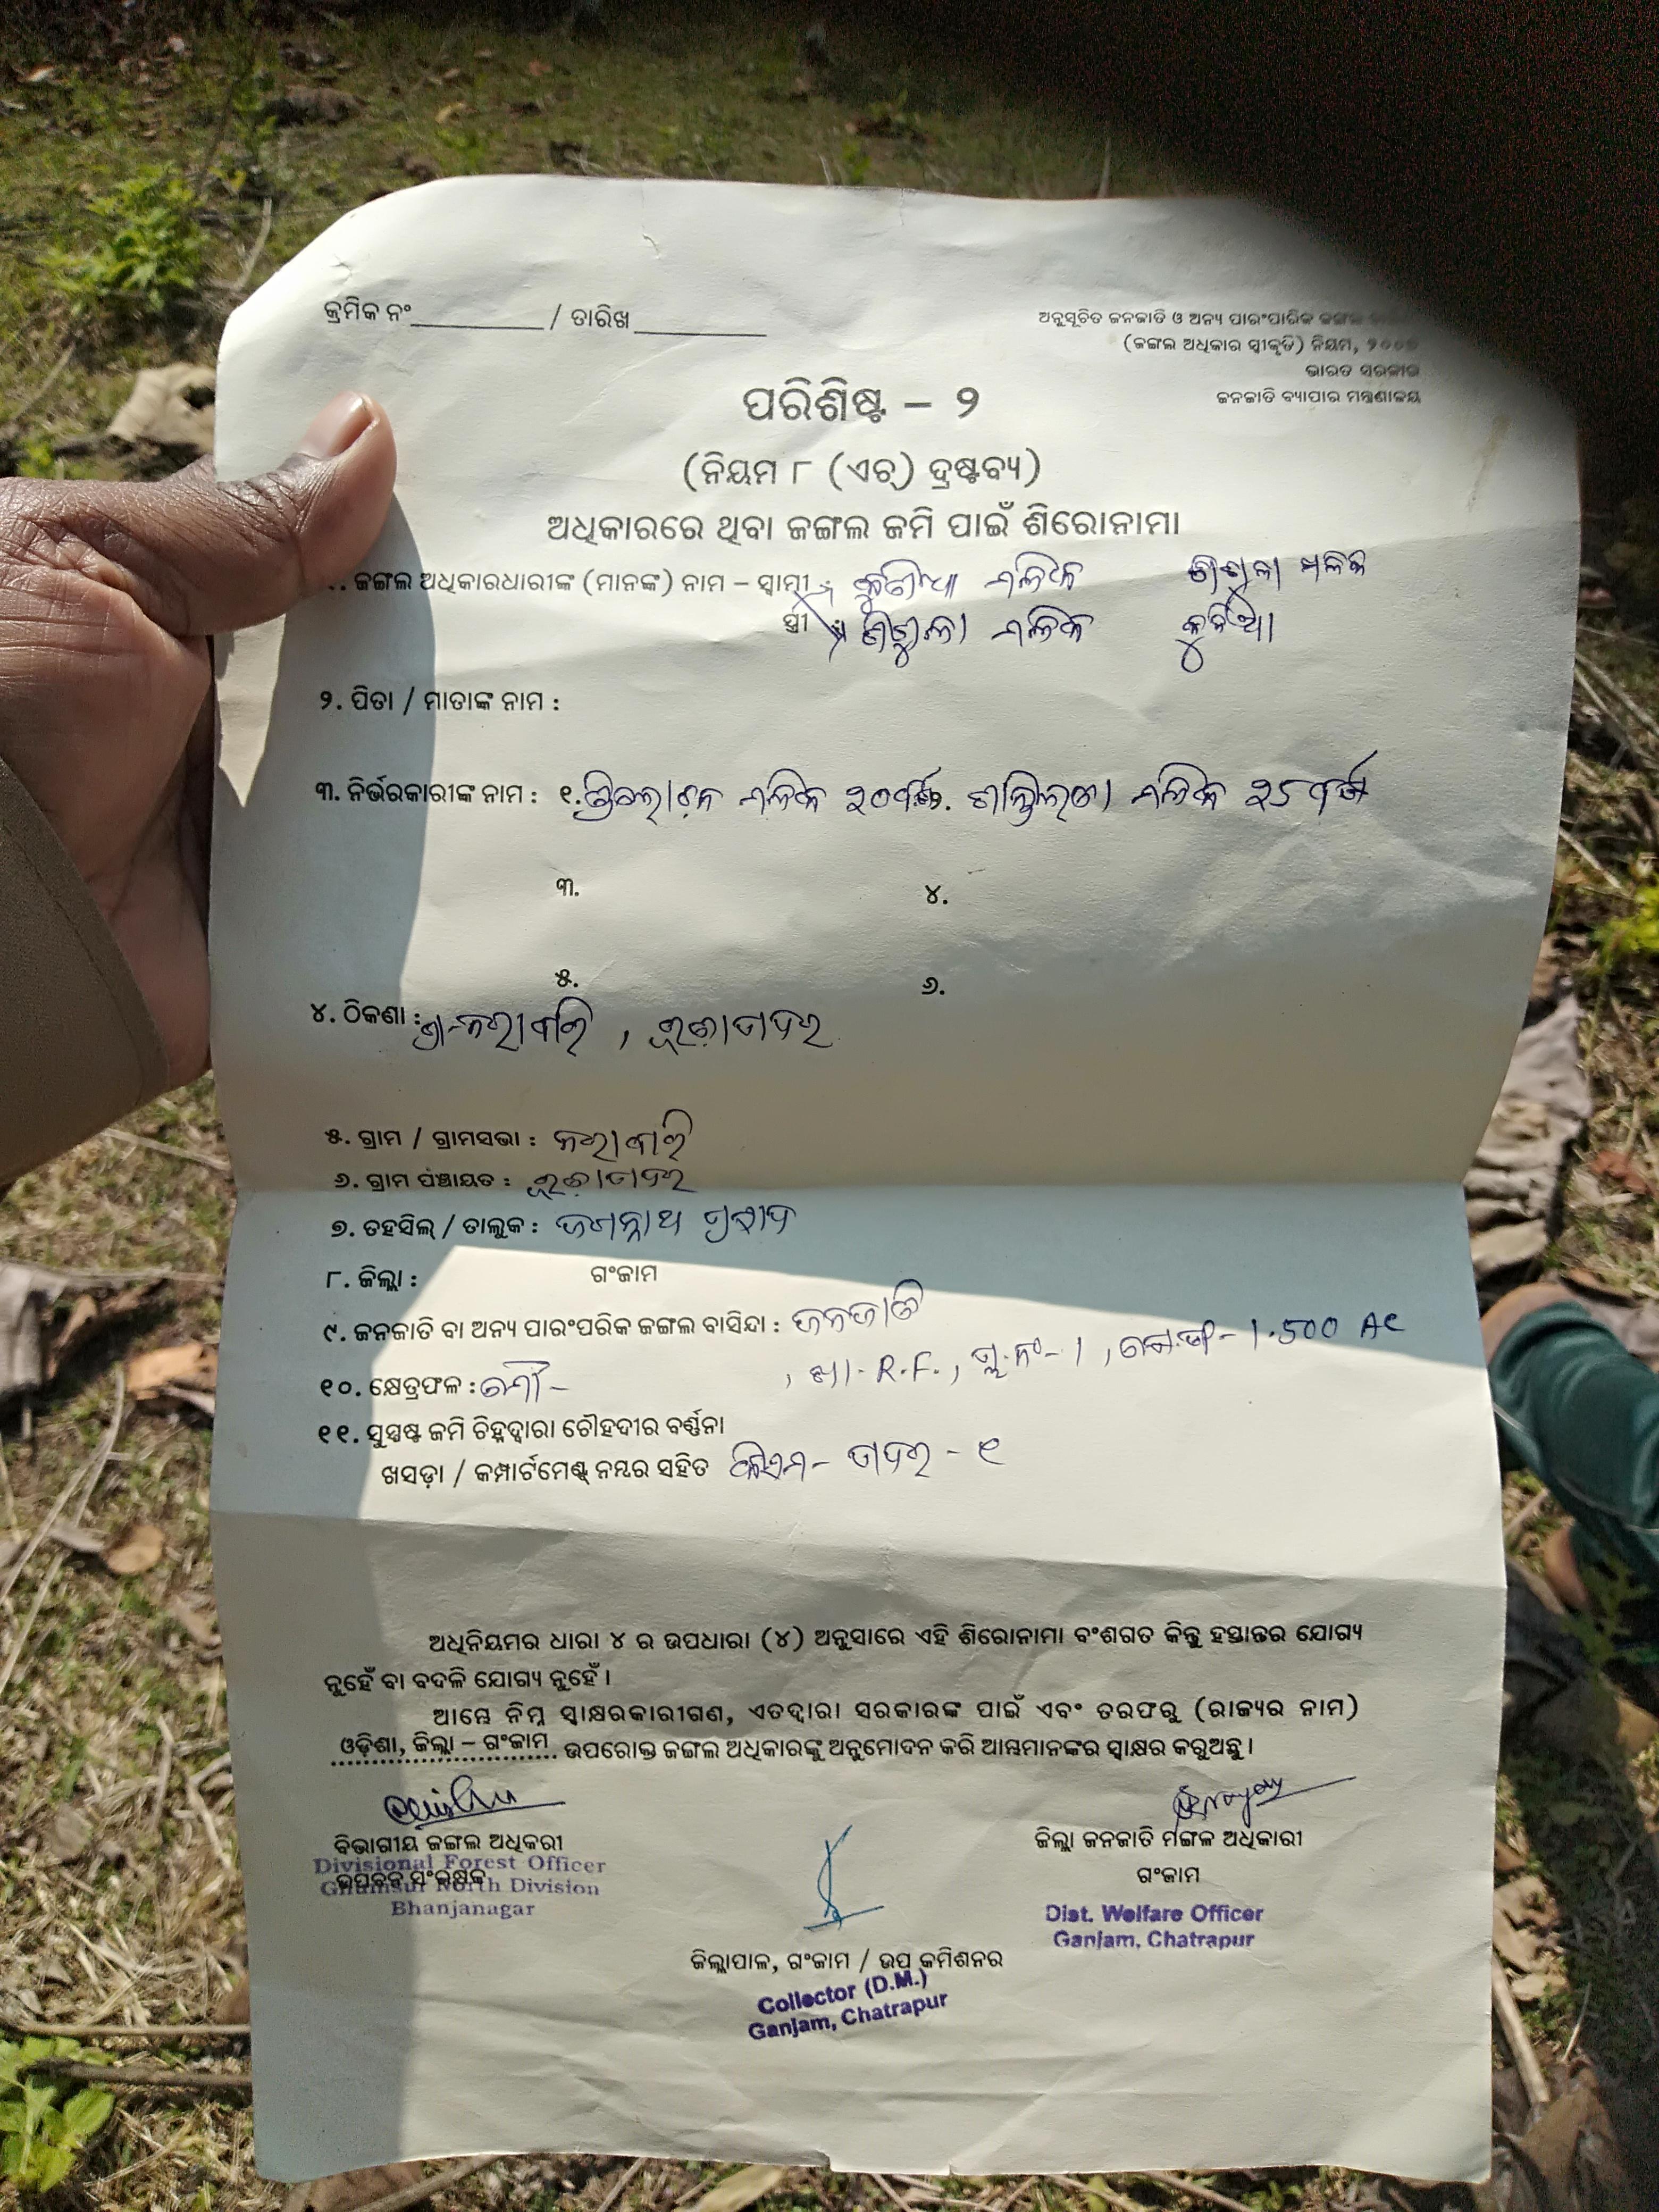 କ୍ରମିକ ନଂ__________ / ତାରିଖ__________
ଅନୁସୂଚିତ ଜନଜାତି ଓ ଅନ୍ୟ ପାରଂପାରିକ ଜଙ୍ଗଲ
(ଜଙ୍ଗଲ ଅଧିକାର ସ୍ୱୀକୃତି) ନିୟମ, ୨୦୦୭
ଭାରତ ସରକାର
ଜନଜାତି ବ୍ୟାପାର ମନ୍ତ୍ରଣାଳୟ
ପରିଶିଷ୍ଟ – ୨
(ନିୟମ ୮ (ଏଚ୍) ଦ୍ରଷ୍ଟବ୍ୟ)
ଅଧିକାରରେ ଥିବା ଜଙ୍ଗଲ ଜମି ପାଇଁ ଶିରୋନାମା
ଜଙ୍ଗଲ ଅଧିକାରଧାରୀଙ୍କ (ମାନଙ୍କ) ନାମ – ସ୍ୱାମୀ : ମଲିକ ମଳିକ
ସ୍ତ୍ରୀ : ମଲିକ
୨. ପିତା / ମାତାଙ୍କ ନାମ :
୩. ନିର୍ଭରକାରୀଙ୍କ ନାମ : ୧. ତ୍ରିଲୋଚନ ମଲିକ ୨୦ବର୍ଷ ୨. ଶାନ୍ତିଲତା ମଲିକ ୨୫ ବର୍ଷ
୩. ୪.
୫. ୬.
୪. ଠିକଣା :
୫. ଗ୍ରାମ / ଗ୍ରାମସଭା :
୬. ଗ୍ରାମ ପଞ୍ଚାୟତ :
୭. ତହସିଲ୍ / ତାଲୁକ : ଜଗନ୍ନାଥ ପ୍ରସାଦ
୮. ଜିଲ୍ଲା : ଗଂଜାମ
୯. ଜନଜାତି ବା ଅନ୍ୟ ପାରଂପରିକ ଜଙ୍ଗଲ ବାସିନ୍ଦା : ଜନଜାତି
୧୦. କ୍ଷେତ୍ରଫଳ : ମୌ – , ଖା. R.F., ପ୍ଲ.ନଂ – 1, – 1.500 AC
୧୧. ସୁସ୍ପଷ୍ଟ ଜମି ଚିହ୍ନଦ୍ୱାରା ଚୌହଦୀର ବର୍ଣ୍ଣନା
ଖସଡ଼ା / କମ୍ପାର୍ଟମେଣ୍ଟ୍ ନମ୍ବର ସହିତ – ୧
ଅଧିନିୟମର ଧାରା ୪ ର ଉପଧାରା (୪) ଅନୁସାରେ ଏହି ଶିରୋନାମା ବଂଶଗତ କିନ୍ତୁ ହସ୍ତାନ୍ତର ଯୋଗ୍ୟ
ନୁହେଁ ବା ବଦଳି ଯୋଗ୍ୟ ନୁହେଁ ।
ଆମ୍ଭେ ନିମ୍ନ ସ୍ୱାକ୍ଷରକାରୀଗଣ, ଏତଦ୍ୱାରା ସରକାରଙ୍କ ପାଇଁ ଏବଂ ତରଫରୁ (ରାଜ୍ୟର ନାମ)
ଓଡ଼ିଶା, ଜିଲ୍ଲା – ଗଂଜାମ ଉପରୋକ୍ତ ଜଙ୍ଗଲ ଅଧିକାରଙ୍କୁ ଅନୁମୋଦନ କରି ଆମ୍ଭମାନଙ୍କର ସ୍ୱାକ୍ଷର କରୁଅଛୁ ।
ବିଭାଗୀୟ ଜଙ୍ଗଲ ଅଧିକରୀ
Divisional Forest Officer
ଉପବନ ସଂରକ୍ଷକ
Ghumsur North Division
Bhanjanagar
ଜିଲ୍ଲା ଜନଜାତି ମଙ୍ଗଳ ଅଧିକାରୀ
ଗଂଜାମ
Dist. Welfare Officer
Ganjam, Chatrapur
ଜିଲ୍ଲାପାଳ, ଗଂଜାମ / ଉପ କମିଶନର
Collector (D.M.)
Ganjam, Chatrapur